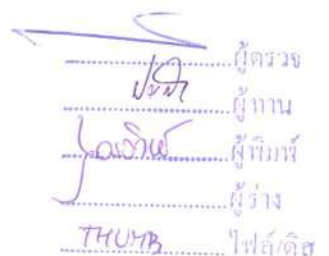 ผู้ตรวจ
ผู้ทาน
ผู้พิมพ์
ผู้ร่าง
THUMB ไฟล์/ดิส